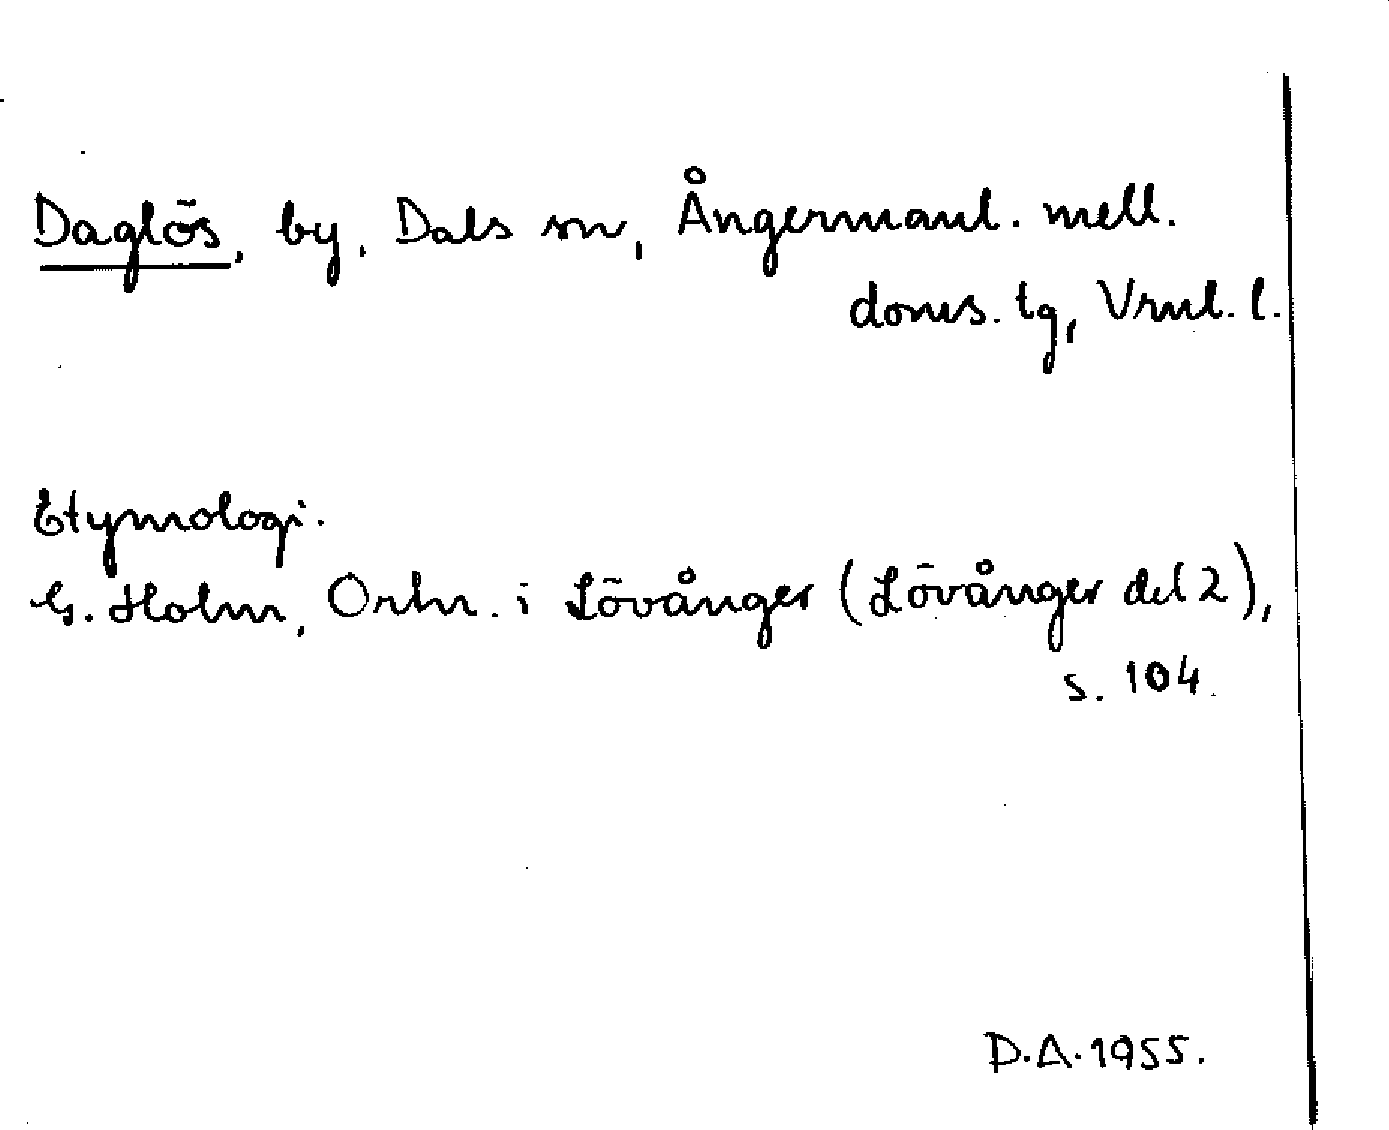 Daglös, by, Dals sn, Ångermanl. mell.
doms. tg, Vrnl. l.
Etymologi.
G. Holm, Ortn. i Lövånger (Lövånger del 2),
s. 104.
D.A. 1955.